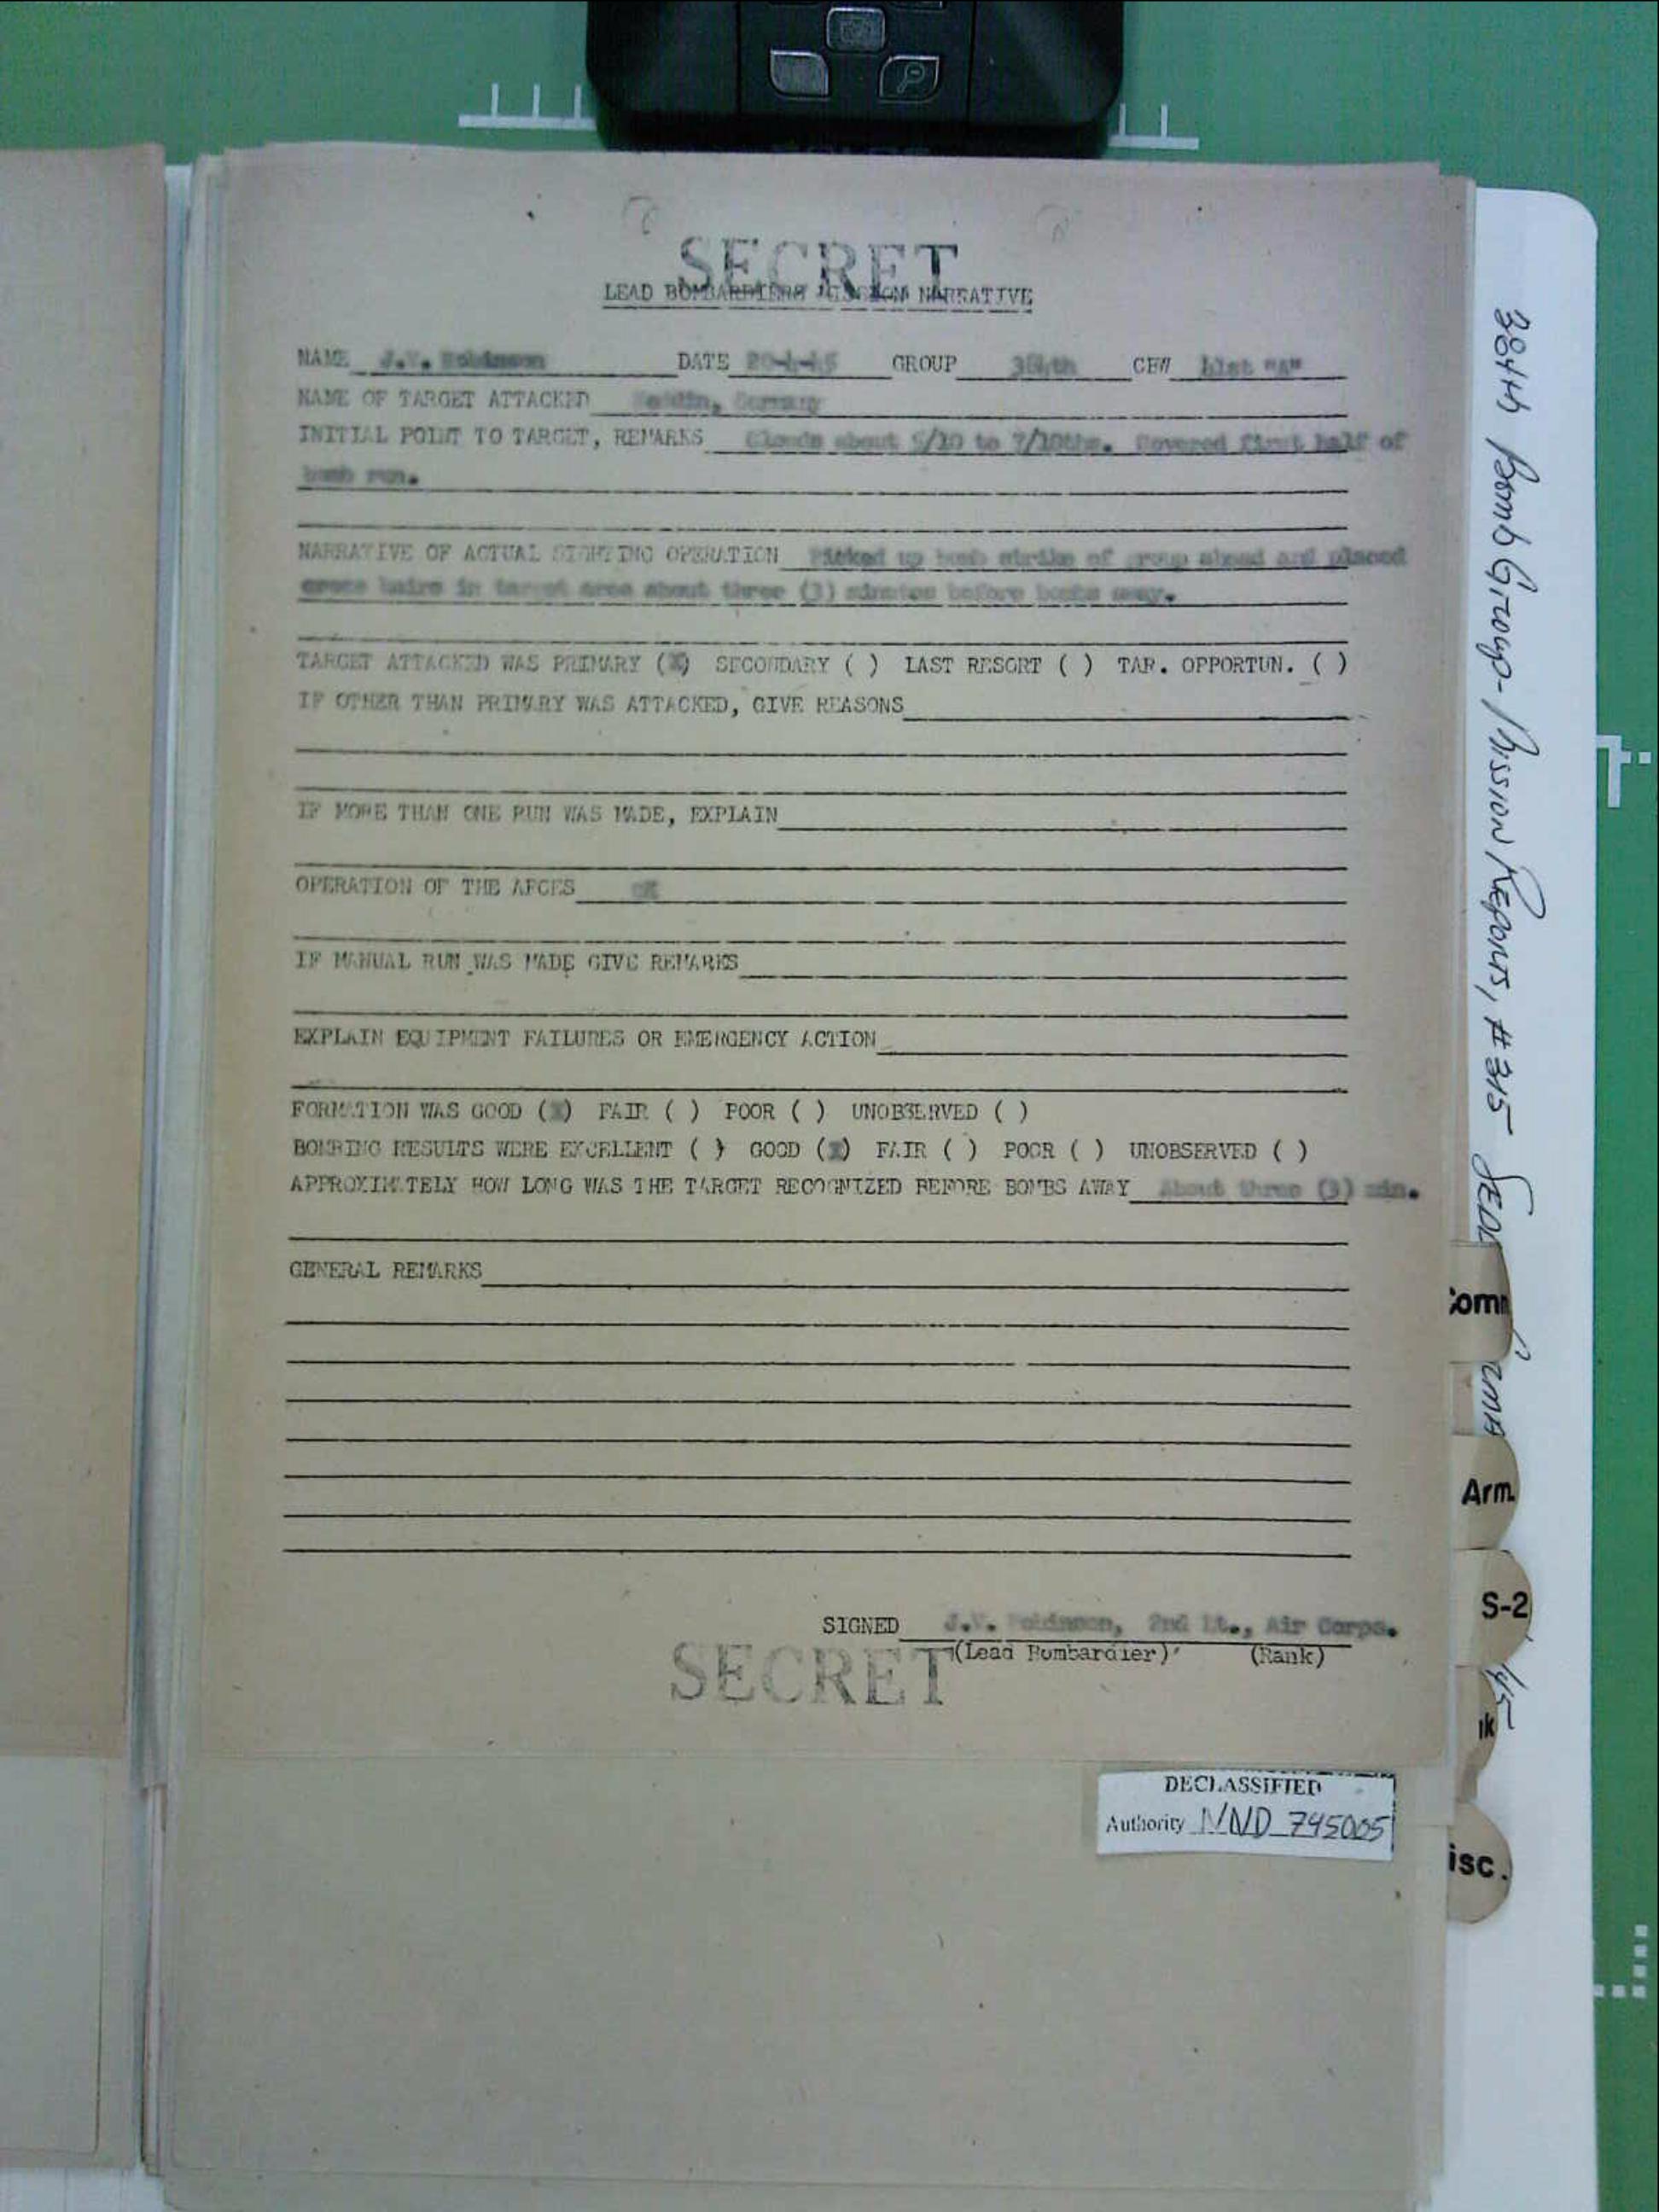 SECRET
LEAD BOMBARDIERS MISSION NARRATIVE
NAME J.V. Robinson DATE 20-4-45 GROUP 384th CBW 41st "A"
NAME OF TARGET ATTACKED Germany
INITIAL POINT TO TARGET, REMARKS Clouds about 5/10 to 7/10ths. Covered first half of
bomb run.
NARRATIVE OF ACTUAL SIGHTING OPERATION Picked up bomb strike of group ahead and placed
cross hairs in target area about three (3) minutes before bombs away.
TARGET ATTACKED WAS PRIMARY (X) SECONDARY ( ) LAST RESORT ( ) TAR. OPPORTUN. ( )
IF OTHER THAN PRIMARY WAS ATTACKED, GIVE REASONS
IF MORE THAN ONE RUN WAS MADE, EXPLAIN
OPERATION OF THE AFCES OK
IF MANUAL RUN WAS MADE GIVE REMARKS
EXPLAIN EQUIPMENT FAILURES OR EMERGENCY ACTION
FORMATION WAS GOOD (X) FAIR ( ) POOR ( ) UNOBSERVED ( )
BOMBING RESULTS WERE EXCELLENT ( ) GOOD (X) FAIR ( ) POOR ( ) UNOBSERVED ( )
APPROXIMATELY HOW LONG WAS THE TARGET RECOGNIZED BEFORE BOMBS AWAY About three (3) min.
GENERAL REMARKS
SIGNED J.V. Robinson, 2nd Lt., Air Corps.
(Lead Bombardier) (Rank)
SECRET
DECLASSIFIED
Authority NND 745005
384th Bomb Group - Mission Reports, #315
Arm.
S-2